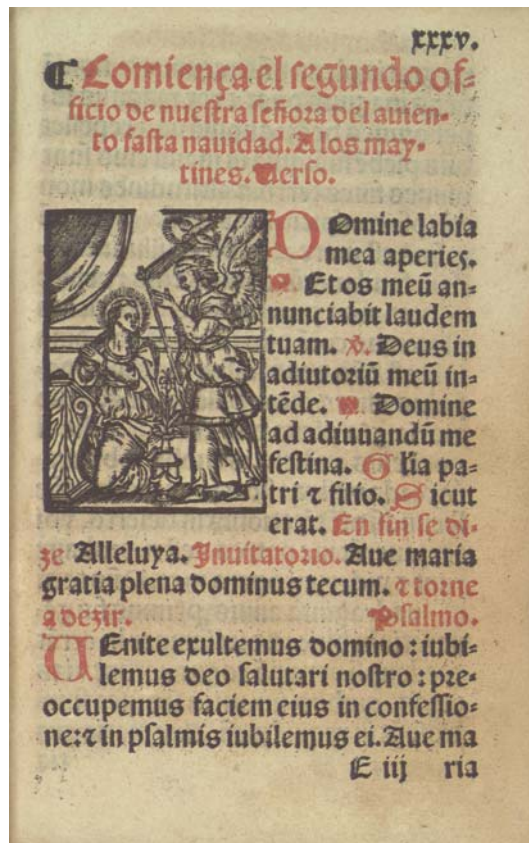 xxxv.
¶ Comiença el segundo of-
ficio de nuestra señora del auien-
to fasta nauidad. A los may-
tines. Verso.
DOmine labia
mea aperies.
℟. Et os meū an-
nunciabit laudem
tuam. ℣. Deus in
adiutoriū meū in-
tēde. ℟. Domine
ad adiuuandū me
festina. G lia pa-
tri ⁊ filio. S icut
erat. En fin se di-
ze Alleluya. Inuitatorio. Aue maria
gratia plena dominus tecum. ⁊ torne
a dezir. Psalmo.
VEnite exultemus domino : iubi-
lemus deo salutari nostro : pre-
occupemus faciem eius in confessio-
ne: ⁊ in psalmis iubilemus ei. Aue ma
E iij ria